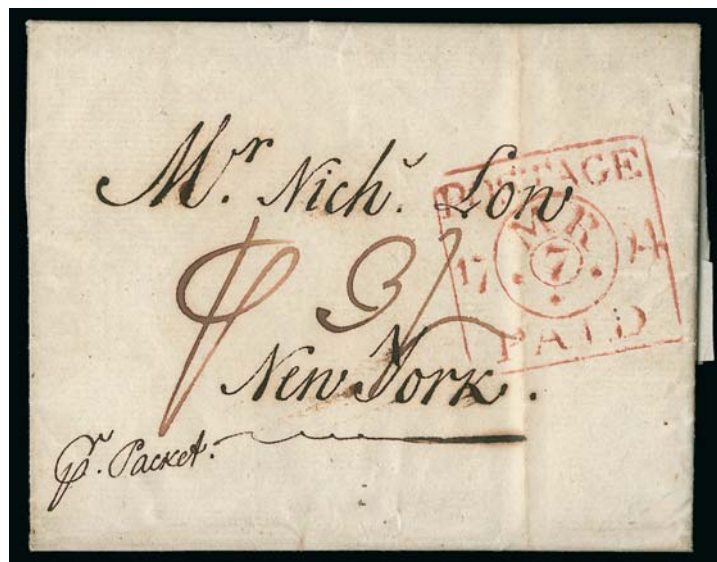 Mr. Nichs. Low
POSTAGE
MR
17 7 94
PAID
P 3/
New York.
pr. Packet.